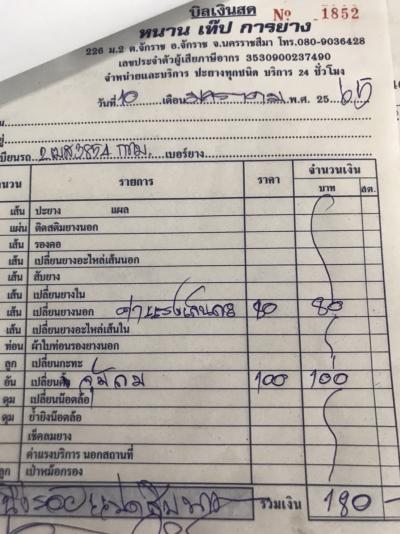 บิลเงินสด № 1852
หนาน เท๊ป การยาง
226 ม.2 ต.จักราช อ.จักราช จ.นครราชสีมา โทร.080-9036428
เลขประจำตัวผู้เสียภาษีอากร 3530900237490
จำหน่ายและบริการ ปะยางทุกชนิด บริการ 24 ชั่วโมง
วันที่ 10 เดือน มกราคม พ.ศ. 2565
เบียนรถ เบอร์ยาง
นวน รายการ ราคา จำนวนเงิน
บาท สต.
เส้น ปะยาง แผล
แผ่น ติดสติมยางนอก
เส้น รองคอ
เส้น เปลี่ยนยางอะไหล่เส้นนอก
เส้น สับยาง
เส้น เปลี่ยนยางใน
เส้น เปลี่ยนยางนอก 80 80
เส้น เปลี่ยนยางอะไหล่เส้นใน
ท่อน ผ้าใบท่อนรองยางนอก
ลูก เปลี่ยนกะทะ
อัน เปลี่ยน จุ๊บลม 100 100
ดุม เปลี่ยนน๊อตล้อ
ดุม ย้ำยิงน๊อตล้อ
เช็คลมยาง
ค่าแรงบริการ นอกสถานที่
ลูก เป่าหม้อกรอง
หนึ่งร้อยแปดสิบบาท รวมเงิน 180 -